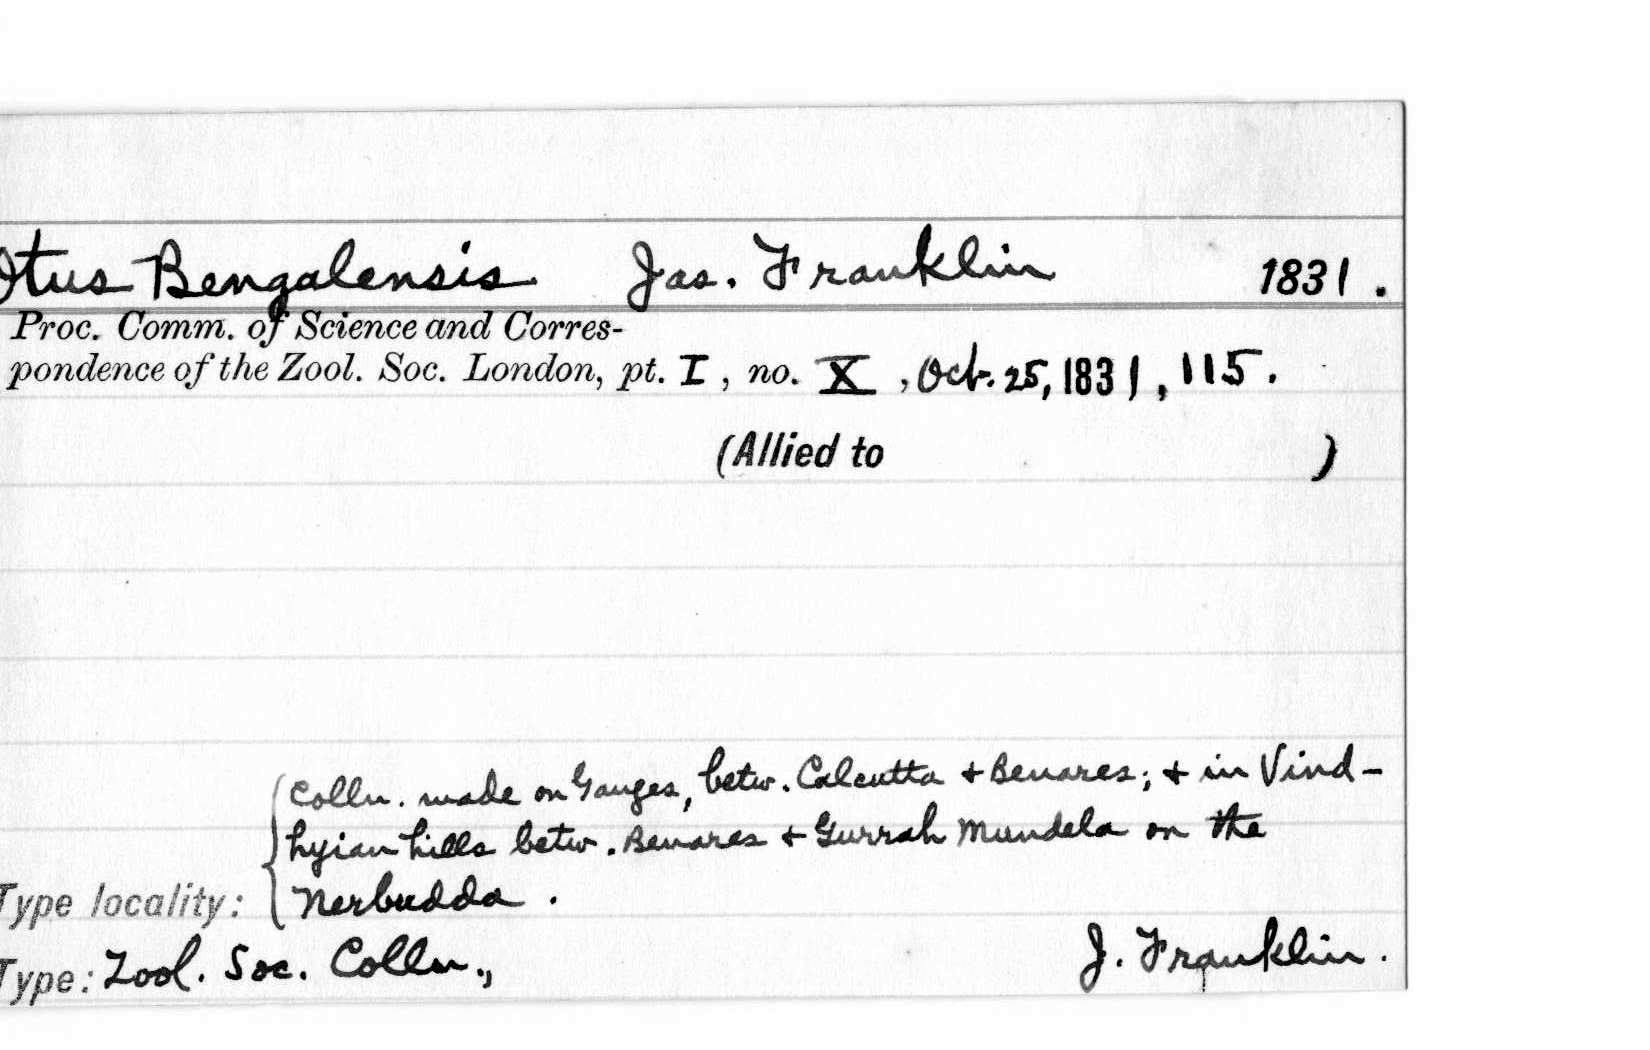 Otus Bengalensis Jas. Franklin 1831.
Proc. Comm. of Science and Corres-
pondence of the Zool. Soc. London, pt. I, no. X, Oct. 25, 1831, 115.
(Allied to )
Colln. made on Ganges, betw. Calcutta + Benares; + in Vind-
hyian hills betw. Benares + Gurrah Mundela on the
Type locality: Nerbudda.
Type: Zool. Soc. Colln., J. Franklin.